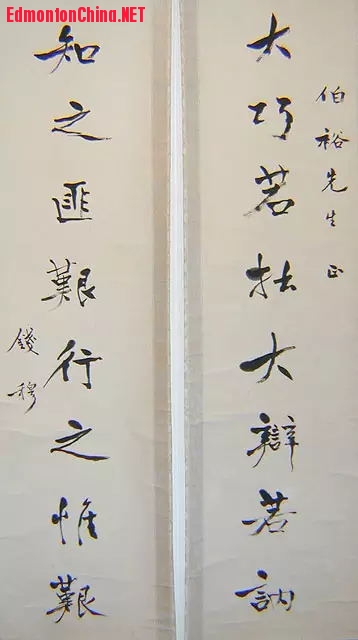 EdmontonChina.NET
伯裕先生正
大巧若拙大辯若訥
知之匪艱行之惟艱
錢穆